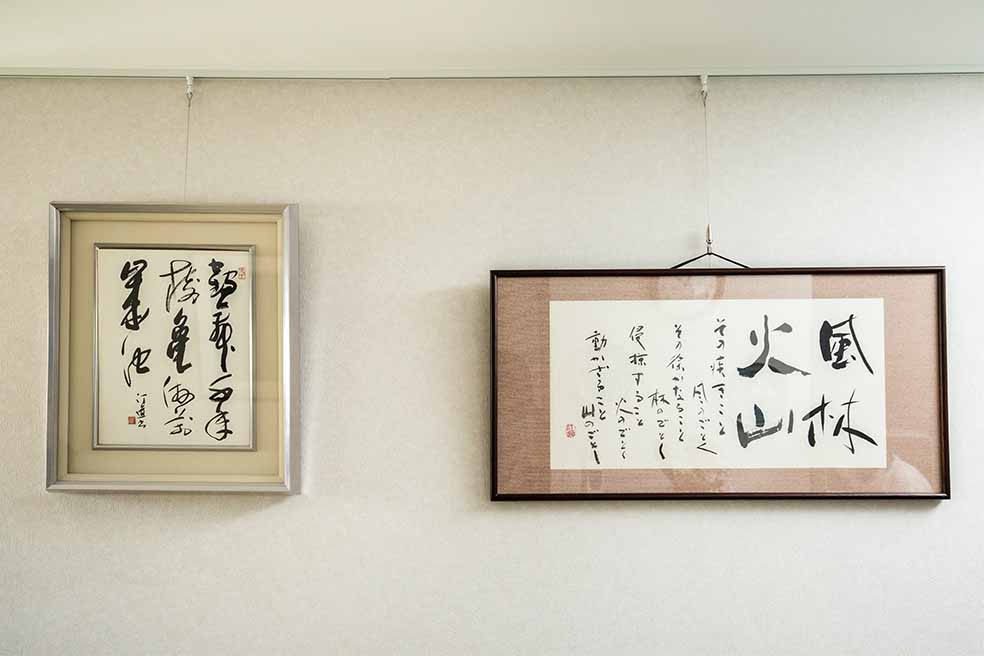 鶴舞千年
亀
池
風林
火山
その疾きこと
風のごとく
その徐かなること
林のごとし
侵掠すること
火のごとし
動かざること
山のごとし